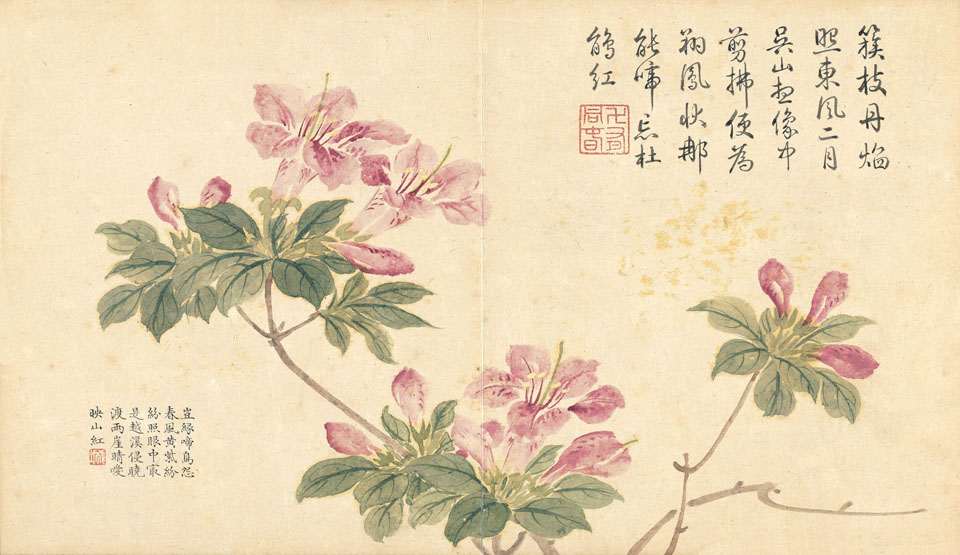 簇枝丹焰
照東風二月
吳山想像中
剪拂便為
翔鳳狀那
能啼忘杜
鵑紅
豈緣啼鳥怨
春風黃紫紛
紛照眼中最
是越溪侵曉
渡兩崖晴曖
映山紅